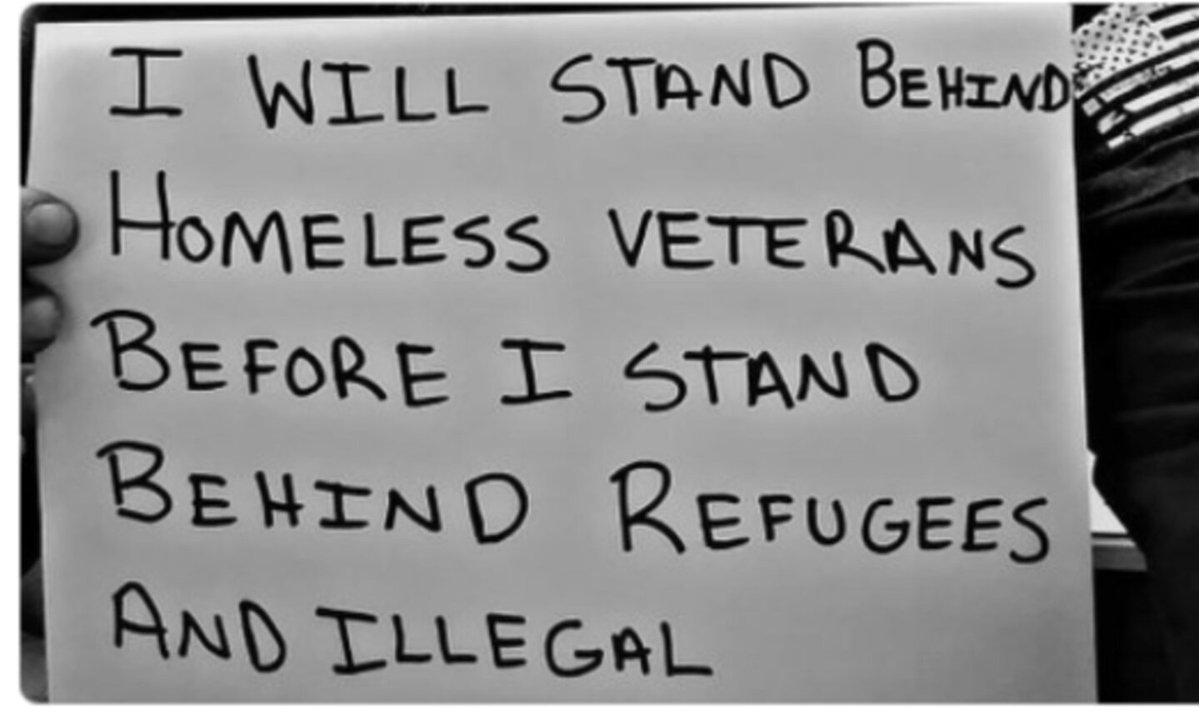 I WILL STAND BEHIND
HOMELESS VETERANS
BEFORE I STAND
BEHIND REFUGEES
AND ILLEGAL